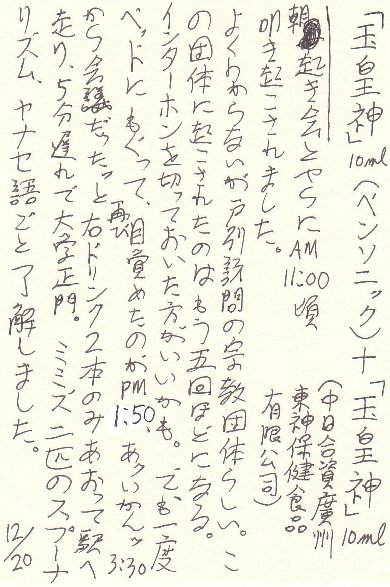 「玉皇神」10ml（ペンソニック）＋「玉皇神」10ml
（中日合資廣州
東神保健食品
有限公司）
朝起き会とやらにAM11:00頃
叩き起こされました。
よくわからないが戸別訪問の宗教団体らしい。こ
の団体に起こされたのはもう五回ほどになる。
インターホンを切っておいた方がいいかも。でも一度
ベッドにもぐって、再び目覚めたのがPM1:50、あ、いかんッ3:30
から会議だったッと右ドリンク2本のみあおって駅へ
走り、5分遅れで大学正門。ミミズ二匹のスプーナ
リズム、ヤナセ語ごと了解しました。
12/20